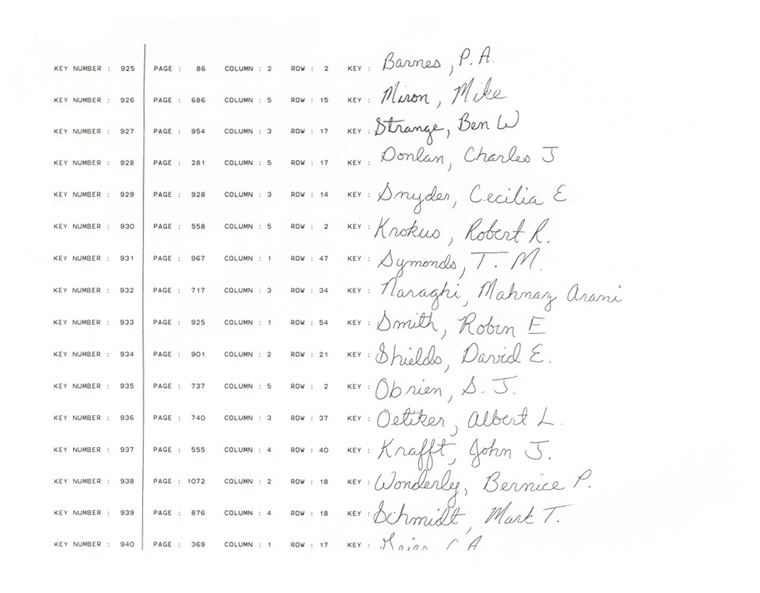 KEY NUMBER : 925 PAGE : 86 COLUMN : 2 ROW : 2 KEY : Barnes, P.A.
KEY NUMBER : 926 PAGE : 686 COLUMN : 5 ROW : 15 KEY : Miron, Mike
KEY NUMBER : 927 PAGE : 954 COLUMN : 3 ROW : 17 KEY : Strange, Ben W
KEY NUMBER : 928 PAGE : 281 COLUMN : 5 ROW : 17 KEY : Donlan, Charles J
KEY NUMBER : 929 PAGE : 928 COLUMN : 3 ROW : 14 KEY : Snyder, Cecilia E.
KEY NUMBER : 930 PAGE : 558 COLUMN : 5 ROW : 2 KEY : Krokus, Robert R.
KEY NUMBER : 931 PAGE : 967 COLUMN : 1 ROW : 47 KEY : Symonds, T. M.
KEY NUMBER : 932 PAGE : 717 COLUMN : 3 ROW : 34 KEY : Naraghi, Mahnaz Arani
KEY NUMBER : 933 PAGE : 925 COLUMN : 1 ROW : 54 KEY : Smith, Robin E
KEY NUMBER : 934 PAGE : 901 COLUMN : 2 ROW : 21 KEY : Shields, David E.
KEY NUMBER : 935 PAGE : 737 COLUMN : 5 ROW : 2 KEY : Obrien, S. J.
KEY NUMBER : 936 PAGE : 740 COLUMN : 3 ROW : 37 KEY : Oetiker, Albert L.
KEY NUMBER : 937 PAGE : 555 COLUMN : 4 ROW : 40 KEY : Krafft, John J.
KEY NUMBER : 938 PAGE : 1072 COLUMN : 2 ROW : 18 KEY : Wonderly, Bernice P.
KEY NUMBER : 939 PAGE : 876 COLUMN : 4 ROW : 18 KEY : Schmidt, Mark T.
KEY NUMBER : 940 PAGE : 369 COLUMN : 1 ROW : 17 KEY :